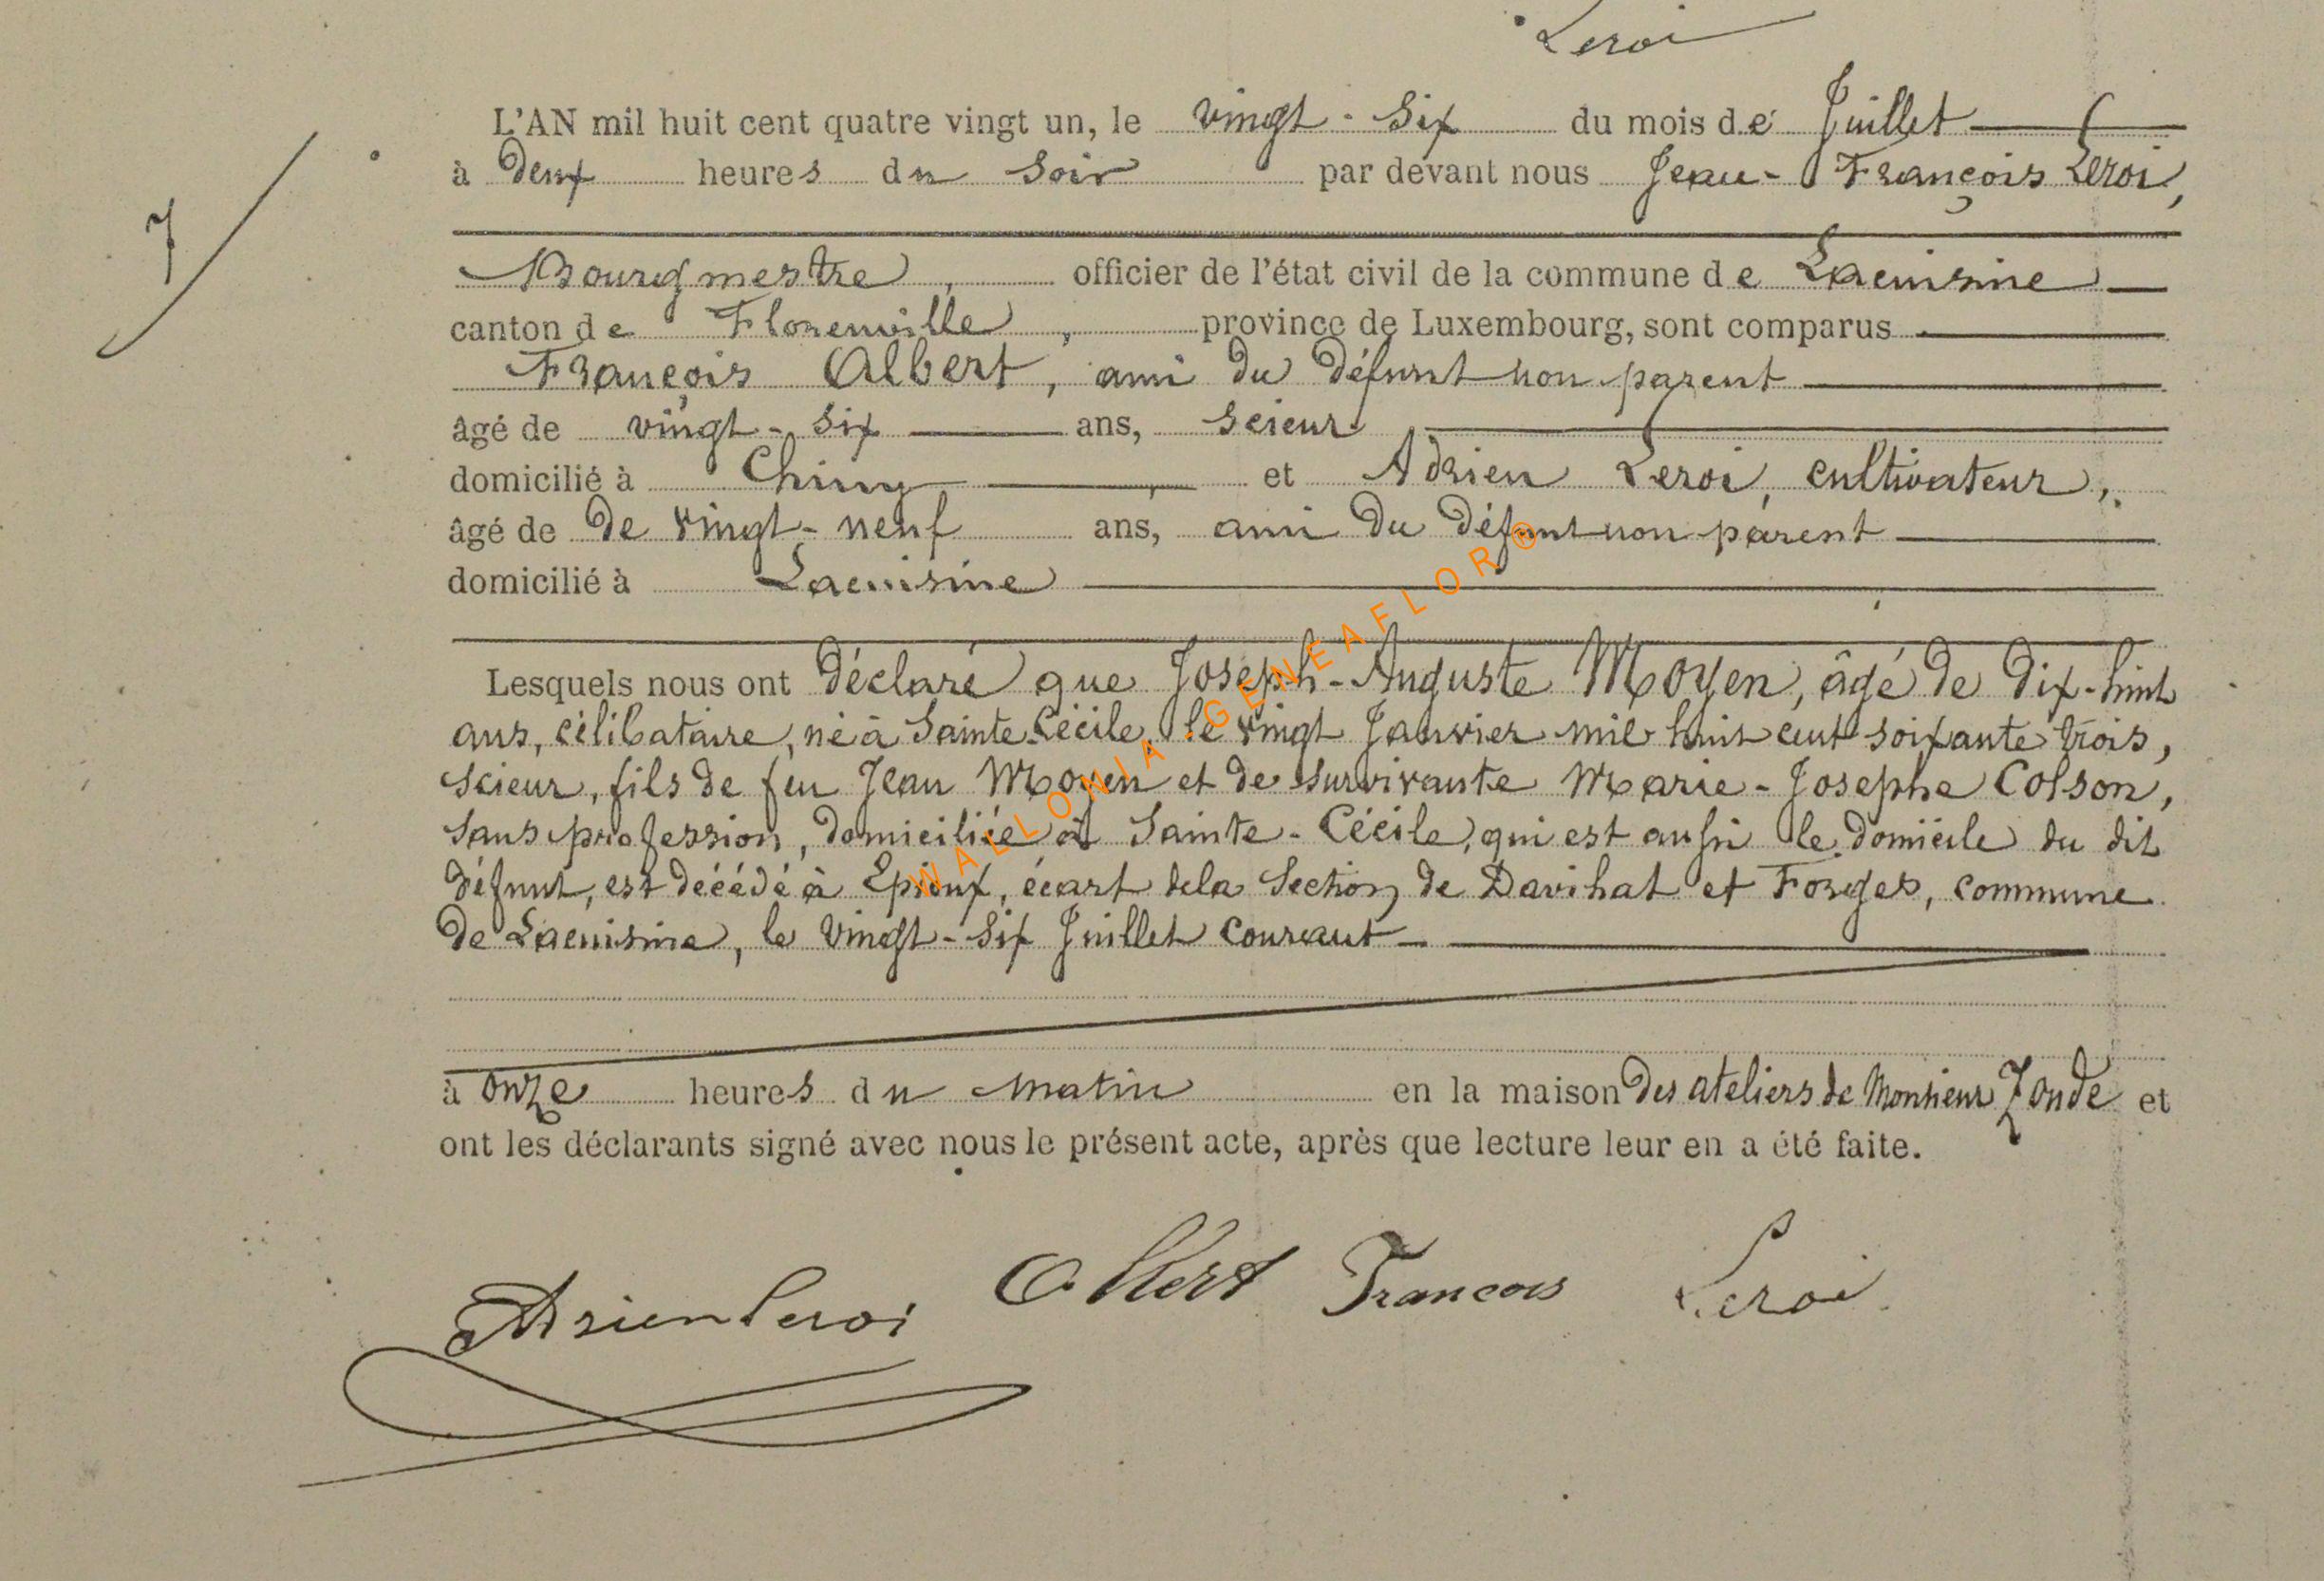 Leroi
L'AN mil huit cent quatre vingt un, le vingt-six du mois de Juillet
7
à deux heures du soir par devant nous Jean-François Leroi,
Bourgmestre, officier de l'état civil de la commune de Lacuisine
canton de Florenville, province de Luxembourg, sont comparus
François Albert, ami du défunt non parent
âgé de vingt-six ans, scieur
domicilié à Chiny, et Adrien Leroi, cultivateur,
âgé de de vingt-neuf ans, ami du défunt non parent
domicilié à Lacuisine
Lesquels nous ont déclaré que Joseph-Auguste Moyen, âgé de dix-huit
ans, célibataire, né à Sainte-Cécile, le vingt Janvier mil huit cent soixante trois,
scieur, fils de feu Jean Moyen et de survivante Marie-Josephe Colson,
sans profession, domiciliée à Sainte-Cécile, qui est aussi le domicile du dit
défunt, est décédé à Epioux, écart de la Section de Davihat et Forges, commune
de Lacuisine, le vingt-six Juillet courant
à onze heures du matin en la maison des ateliers de Monsieur Zoude et
ont les déclarants signé avec nous le présent acte, après que lecture leur en a été faite.
Adrien Leroi Albert François Leroi
WALLONIA GENEAFLOR®